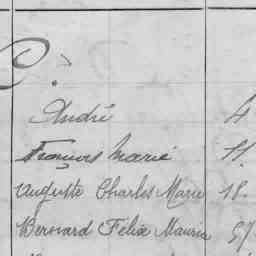 André 4
François Marie 11.
Auguste Charles Marie 18.
Bernard Félix Maurice 57